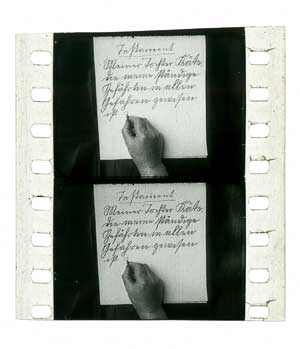 Testament
Meiner Tochter Käte,
die meine ständige
Gefährtin in allen
Gefahren gewesen
ist
Testament
Meiner Tochter Käte,
die meine ständige
Gefährtin in allen
Gefahren gewesen
ist